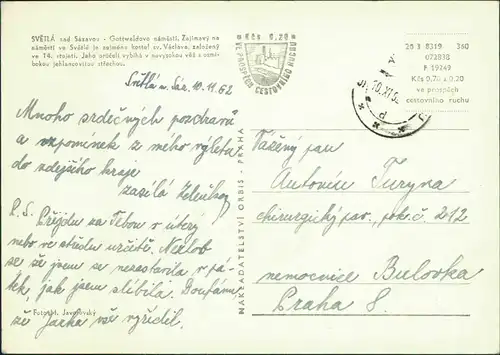 SVĚTLÁ nad Sázavou - Gottwaldovo náměstí. Zajímavý na
náměstí ve Světlé je zejména kostel sv. Václava, založený
ve 14. století. Jeho průčelí vybíhá v nevysokou věž s osmi-
bokou jehlancovitou střechou.
Světlá n. Sáz. 10. 11. 62
Mnoho srdečných pozdravů
a vzpomínek z mého výletu
do zdejšího kraje
zasílá
P. S. Přijdu za Tebou v úterý
nebo ve středu určitě. Nezlob
se že jsem se nezastavila v pá-
tek, jak jsem slíbila. Doufám,
že Jarka vše vyřídil.
Fotogr. J.
NAKLADATELSTVÍ ORBIS - PRAHA
Kčs 0,20
VE PROSPĚCH CESTOVNÍHO RUCHU
20 3 0319 360
073838
F 19249
Kčs 0,70 a 0,20
ve prospěch
cestovního ruchu
Vážený pan
Antonín Turyna
chirurgický pav., pok. č. 212
nemocnice Bulovka
Praha 8.